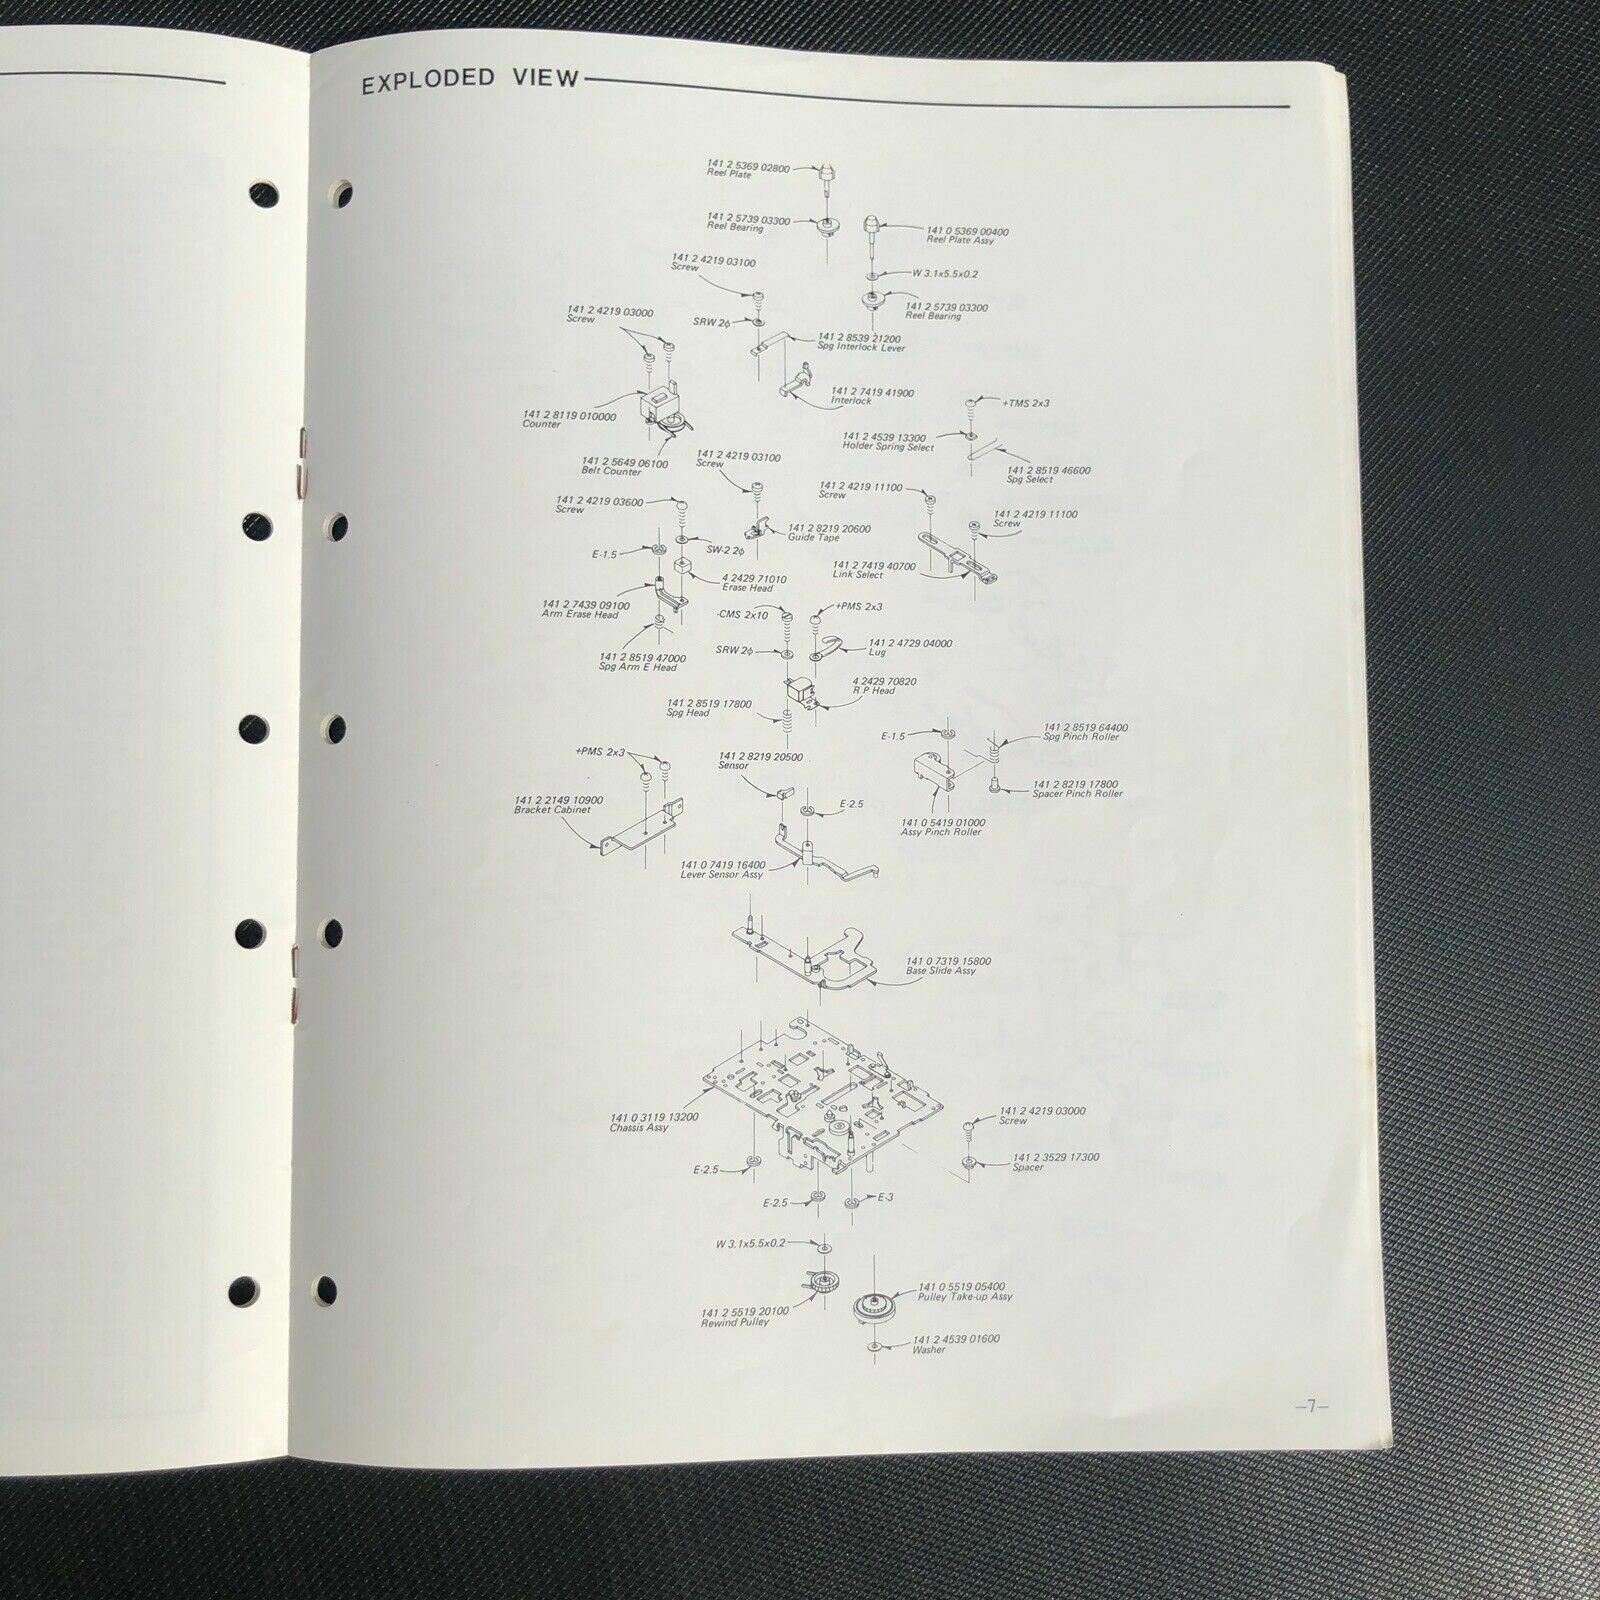 EXPLODED VIEW
141 2 5369 02800
Reel Plate
141 2 5739 03300
Reel Bearing
141 0 5369 00400
Reel Plate Assy
141 2 4219 03100
Screw
W 3.1x5.5x0.2
141 2 5739 03300
Reel Bearing
141 2 4219 03000
Screw
SRW 2ϕ
141 2 8539 21200
Spg Interlock Lever
141 2 7419 41900
Interlock
+TMS 2x3
141 2 8119 010000
Counter
141 2 4539 13300
Holder Spring Select
141 2 4219 03100
Screw
141 2 5649 06100
Belt Counter
141 2 8519 46600
Spg Select
141 2 4219 11100
Screw
141 2 4219 03600
Screw
141 2 4219 11100
Screw
141 2 8219 20600
Guide Tape
E-1.5
SW-2 2ϕ
141 2 7419 40700
Link Select
4 2429 71010
Erase Head
141 2 7439 09100
Arm Erase Head
-CMS 2x10
+PMS 2x3
141 2 4729 04000
Lug
SRW 2ϕ
141 2 8519 47000
Spg Arm E Head
4 2429 70820
R P Head
141 2 8519 17800
Spg Head
141 2 8519 64400
Spg Pinch Roller
E-1.5
+PMS 2x3
141 2 8219 20500
Sensor
141 2 8219 17800
Spacer Pinch Roller
141 2 2149 10900
Bracket Cabinet
E-2.5
141 0 5419 01000
Assy Pinch Roller
141 0 7419 16400
Lever Sensor Assy
141 0 7319 15800
Base Slide Assy
141 0 3119 13200
Chassis Assy
141 2 4219 03000
Screw
141 2 3529 17300
Spacer
E-2.5
E-2.5
E-3
W 3.1x5.5x0.2
141 0 5519 05400
Pulley Take-up Assy
141 2 5519 20100
Rewind Pulley
141 2 4539 01600
Washer
—7—